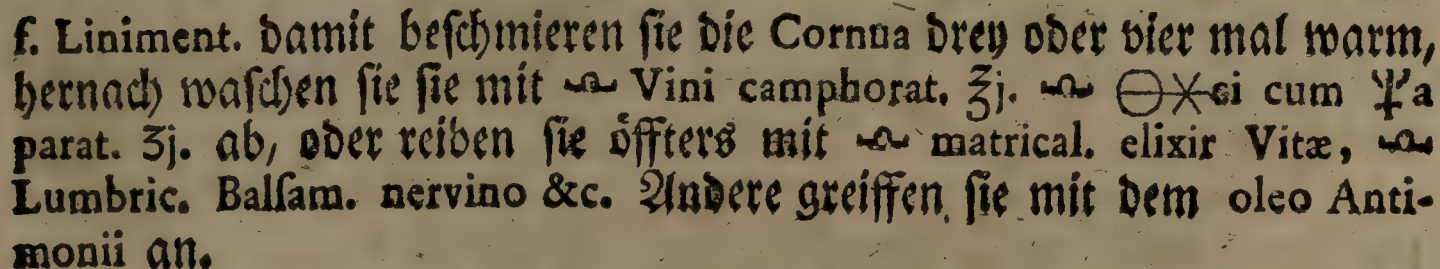 f. Liniment. damit beſchmieren ſie die Cornua drey oder vier mal warm,
hernach waſchen ſie ſie mit 🝆 Vini camphorat. ℥j. 🝆 🜔✳ci cum ♆a
parat. ʒj. ab, oder reiben ſie öffters mit 🝆 matrical. elixir Vitæ, 🝆
Lumbric. Balſam. nervino &c. Andere greiffen ſie mit dem oleo Anti-
monii an.